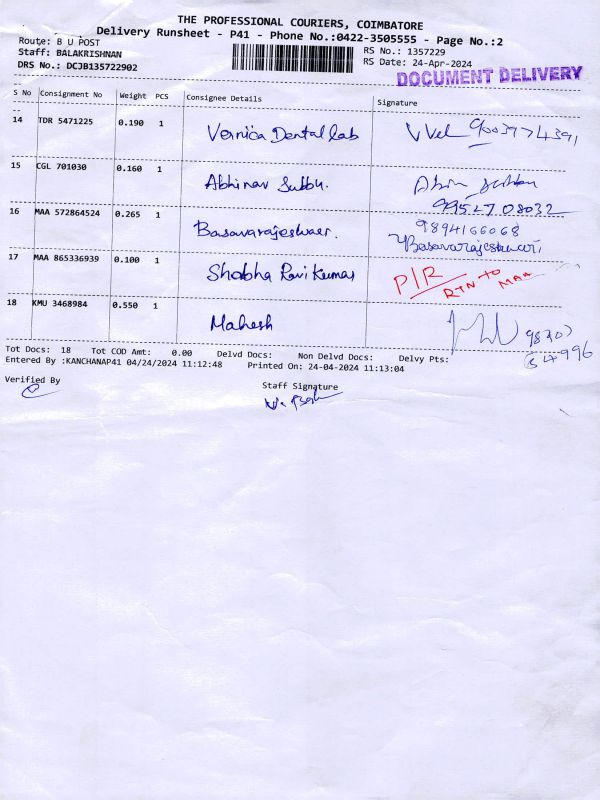 THE PROFESSIONAL COURIERS, COIMBATORE
Delivery Runsheet - P41 - Phone No.:0422-3505555 - Page No.:2
Route: B U POST
Staff: BALAKRISHNAN
DRS No.: DCJB135722902
RS No.: 1357229
RS Date: 24-Apr-2024
DOCUMENT DELIVERY
S No Consignment No Weight PCS Consignee Details Signature
14 TDR 5471225 0.190 1 Vernica Dental lab V Vel 9003974391
15 CGL 701030 0.160 1 Abhinav Subbu.
9952708032
16 MAA 572864524 0.265 1 Basavarajeshwaer. 9894166068
Basavarajeshwari
17 MAA 865336939 0.100 1 Shobha Ravi Kumar P/R RTN to MAA
18 KMU 3468984 0.550 1 Mahesh
Tot Docs: 18 Tot COD Amt: 0.00 Delvd Docs: Non Delvd Docs: Delvy Pts:
Entered By :KANCHANAP41 04/24/2024 11:12:48 Printed On: 24-04-2024 11:13:04
Verified By
Staff Signature